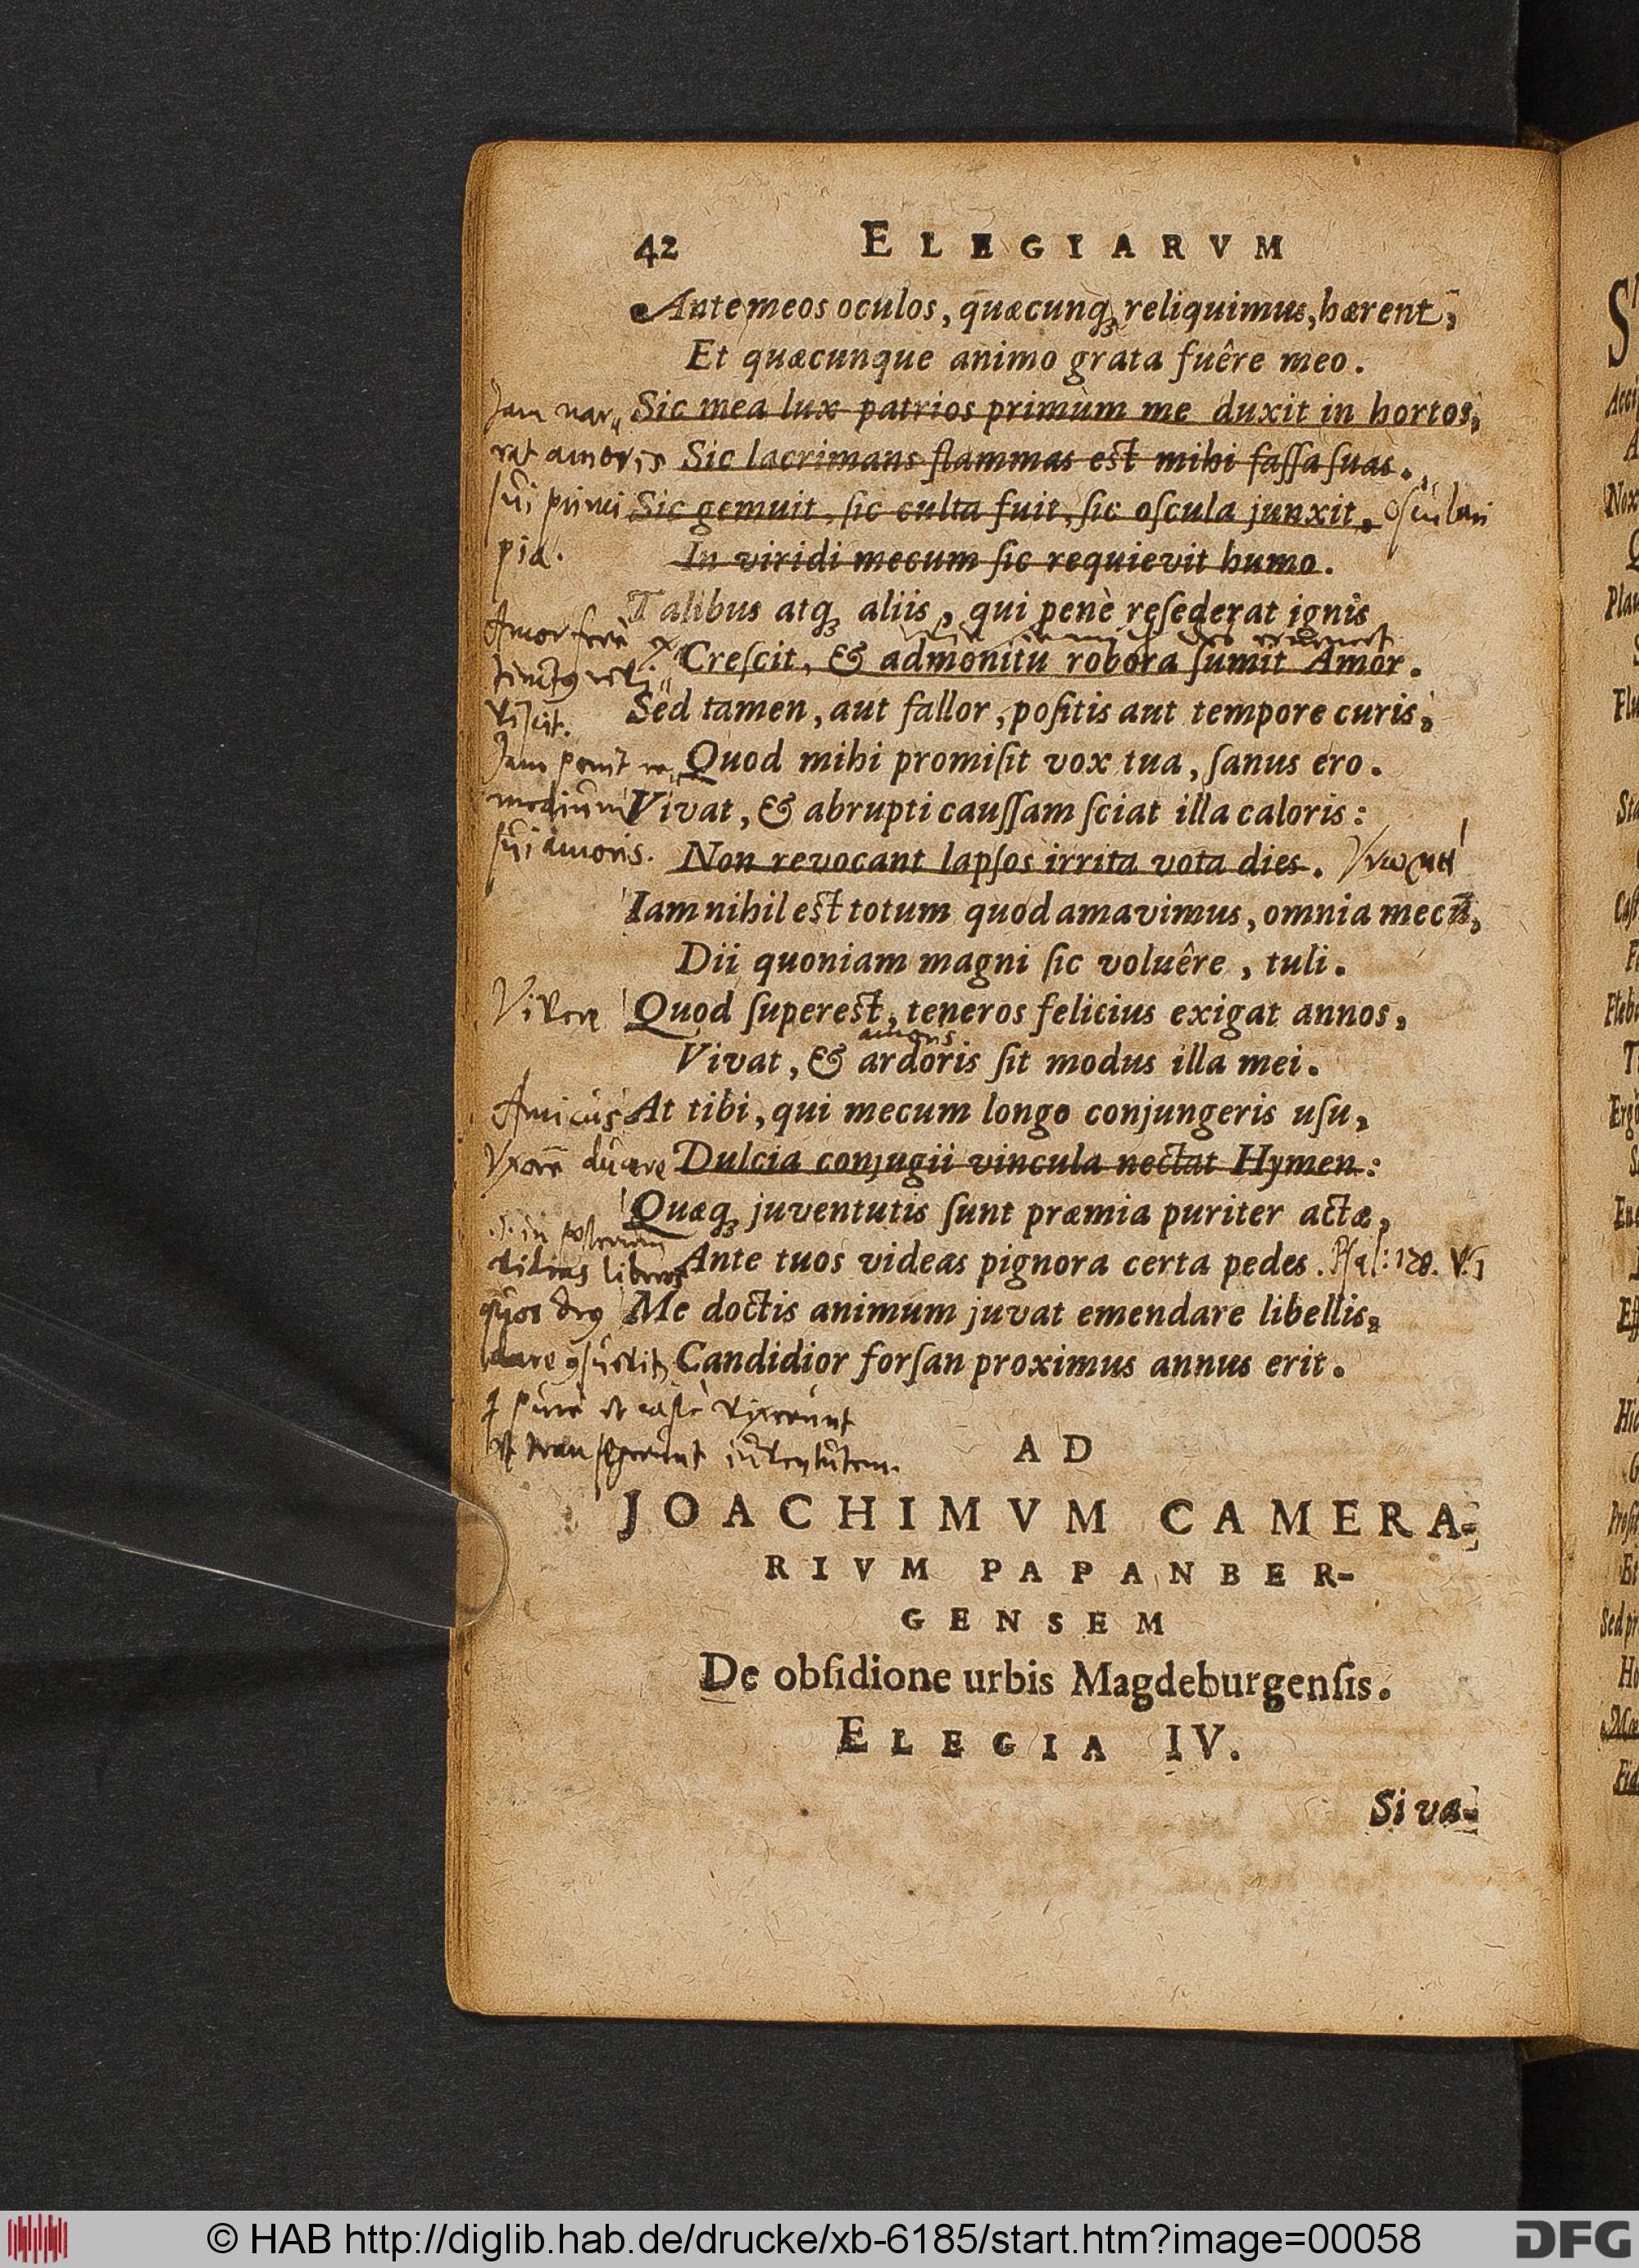 42 ELEGIARVM
Ante meos oculos, quæcunq́ꝫ reliquimus, hærent,
Et quæcunque animo grata fuêre meo.
Jam nar„
Sic mea lux patrios primùm me duxit in hortos,
rat amoris
Sic lacrimans flammas est mihi faſſa ſuas.
sui primi
Sic gemuit, ſic culta fuit, ſic oſcula junxit, Osculari
In viridi mecum ſic requievit humo.
Talibus atqꝫ aliis, qui penè reſederat ignis
Amor ferè ex„
Creſcit, & admonitu robora ſumit Amor.
viscit.
Sed tamen, aut fallor, poſitis aut tempore curis,
Jam ponit re„
Quod mihi promiſit vox tua, ſanus ero.
medium
Vivat, & abrupti cauſſam ſciat illa caloris:
sui amoris.
Non revocant lapſos irrita vota dies. Γνώμη
Iam nihil est totum quod amavimus, omnia mecū,
Dii quoniam magni ſic voluêre, tuli.
Vivere
Quod ſuperest, teneros felicius exigat annos,
amoris
Vivat, & ardoris ſit modus illa mei.
Amicus
At tibi, qui mecum longo conjungeris uſu,
Vxorē ducere
Dulcia conjugii vincula nectat Hymen:
Quæqꝫ juventutis ſunt præmia puriter actæ,
.i. in posterum
Ante tuos videas pignora certa pedes. Psal: 128. v.
videas liberos
quos
Me doctis animum juvat emendare libellis,
dare
Candidior forſan proximus annus erit.
pure et castè vixerunt
et transegerunt iuventutem.
AD
JOACHIMVM CAMERA-
RIVM PAPANBER-
GENSEM
De obſidione urbis Magdeburgenſis.
ELEGIA IV.
Si va-
© HAB http://diglib.hab.de/drucke/xb-6185/start.htm?image=00058
DFG